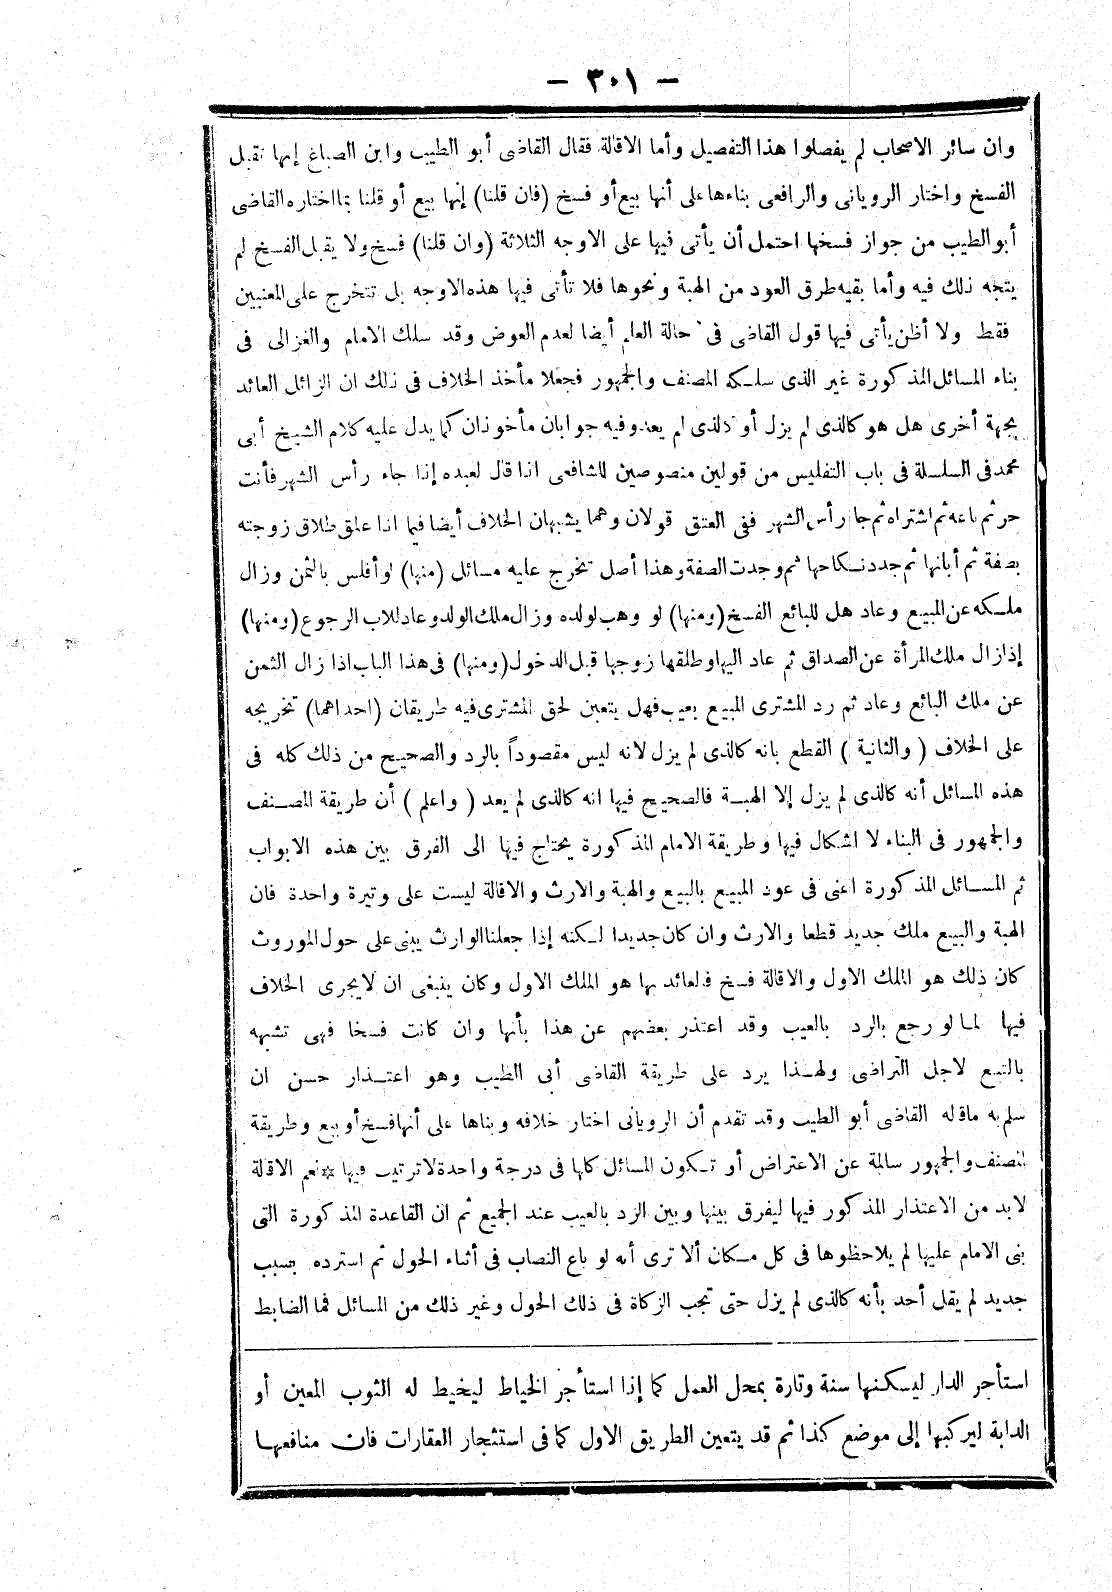 — ٣٠١ —
وان سائر الاصحاب لم يفصلوا هذا التفصيل وأما الاقالة فقال القاضى أبو الطيب وابن الصباغ إنها تقبل
الفسخ واختار الرويانى والرافعى بناءها على أنها بيع أو فسخ (فان قلنا) إنها بيع أو قلنا بما اختاره القاضى
أبو الطيب من جواز فسخها احتمل أن يأتى فيها على الاوجه الثلاثة (وان قلنا) فسخ ولا يقبل الفسخ لم
يتجه ذلك فيه وأما بقيه طرق العود من الهبة ونحوها فلا تأتى فيها هذه الاوجه بل تتخرج على المعنيين
فقط ولا أظن يأتى فيها قول القاضى فى حالة العلم أيضا لعدم العوض وقد سلك الامام والغزالى فى
بناء المسائل المذكورة غير الذى سلكه المصنف والجمهور فجعلا مأخذ الخلاف فى ذلك ان الزائل العائد
بجهة أخرى هل هو كالذى لم يزل أو كالذى لم يعد وفيه جوابان مأخوذان كما يدل عليه كلام الشيخ أبى
محمد فى السلسلة فى باب التفليس من قولين منصوصين للشافعى اذا قال لعبده إذا جاء رأس الشهر فأنت
حر ثم باعه ثم اشتراه ثم جا رأس الشهر ففى العتق قولان وهما يشبهان الخلاف أيضا فيما اذا علق طلاق زوجته
بصفة ثم أبانها ثم جدد نكاحها ثم وجدت الصفة وهذا أصل تخرج عليه مسائل (منها) لو أفلس بالثمن وزال
ملكه عن المبيع وعاد هل للبائع الفسخ (ومنها) لو وهب لولده وزال ملك الولد وعاد للاب الرجوع (ومنها)
إذا زال ملك المرأة عن الصداق ثم عاد اليها وطلقها زوجها قبل الدخول (ومنها) فى هذا الباب اذا زال الثمن
عن ملك البائع وعاد ثم رد المشترى المبيع بعيب فهل يتعين لحق المشترى فيه طريقان (احداهما) تخريجه
على الخلاف ( والثانية ) القطع بانه كالذى لم يزل لانه ليس مقصوداً بالرد والصحيح من ذلك كله فى
هذه المسائل أنه كالذى لم يزل إلا الهبة فالصحيح فيها انه كالذى لم يعد ( واعلم ) أن طريقة المصنف
والجمهور فى البناء لا اشكال فيها وطريقة الامام المذكورة يحتاج فيها الى الفرق بين هذه الابواب
ثم المسائل المذكورة اعنى فى عود المبيع بالبيع والهبة والارث والاقالة ليست على وتيرة واحدة فان
الهبة والبيع ملك جديد قطعا والارث وان كان جديدا لكنه إذا جعلنا الوارث يبنى على حول الموروث
كان ذلك هو الملك الاول والاقالة فسخ فالعائد بها هو الملك الاول وكان ينبغى ان لا يجرى الخلاف
فيها لما لو رجع بالرد بالعيب وقد اعتذر بعضهم عن هذا بأنها وان كانت فسخا فهى تشبه
بالبيع لاجل التراضى ولهذا يرد على طريقة القاضى أبى الطيب وهو اعتذار حسن ان
سلم به ماقاله القاضى أبو الطيب وقد تقدم أن الرويانى اختار خلافه وبناها على أنها فسخ أو بيع وطريقة
المصنف والجمهور سالمة عن الاعتراض أو تكون المسائل كلها فى درجة واحدة لا ترتيب فيها * نعم الاقالة
لابد من الاعتذار المذكور فيها ليفرق بينها وبين الرد بالعيب عند الجميع ثم ان القاعدة المذكورة التى
بنى الامام عليها لم يلاحظوها فى كل مكان ألا ترى أنه لو باع النصاب فى أثناء الحول ثم استرده بسبب
جديد لم يقل أحد بأنه كالذى لم يزل حتى تجب الزكاة فى ذلك الحول وغير ذلك من المسائل فما الضابط
استأجر الدار ليسكنها سنة وتارة بمحل العمل كما إذا استأجر الخياط ليخيط له الثوب المعين أو
الدابة ليركبها إلى موضع كذا ثم قد يتعين الطريق الاول كما فى استئجار العقارات فان منافعها